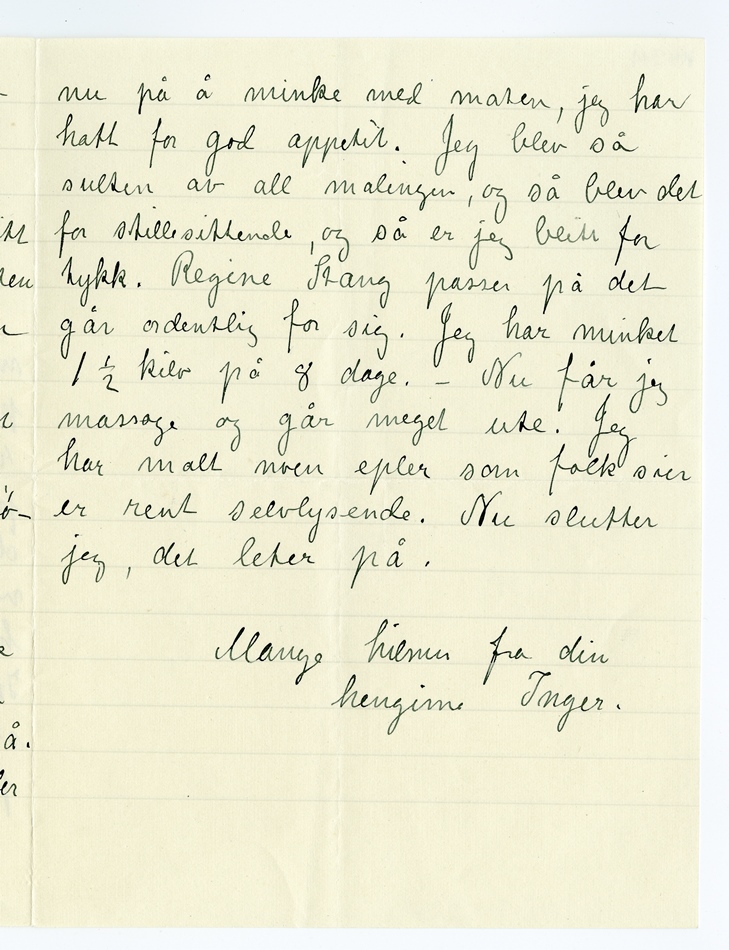 nu på å minke med maten, jeg har
hatt for god appetit. Jeg blev så
sulten av all malingen, og så blev det
for stillesittende, og så er jeg blitt for
tykk. Regine Stang passer på det
går ordentlig for sig. Jeg har minket
1 ½ kilo på 8 dage. – Nu får jeg
massage og går meget ute. Jeg
har malt noen epler som folk sier
er rent selvlysende. Nu slutter
jeg, det leter på.
Mange hilsner fra din
hengivne Inger.
itt
ten
å.